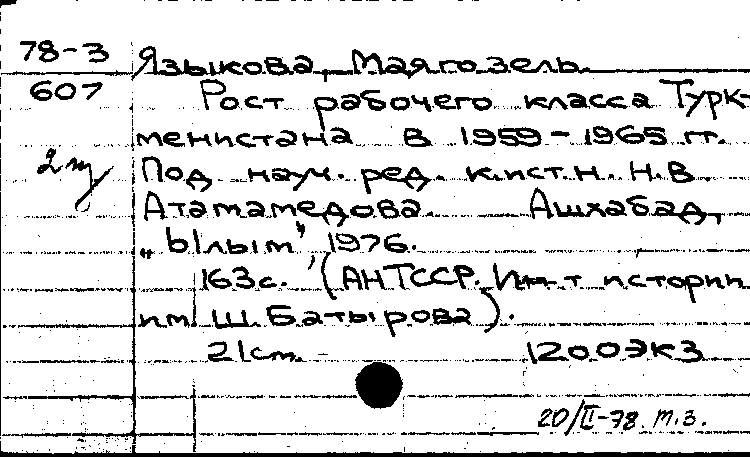 78-3 Языкова, Маягозель.
607 Рост рабочего класса Турк-
менистана в 1959-1965 гг.
Под науч. ред. к.ист.н. Н.В.
Атамамедова. Ашхабад,
„Ылым”, 1976.
163с. (АНТССР. Ин-т истории
им. Ш. Батырова).
21см. 1200экз
20/II-78. т.з.